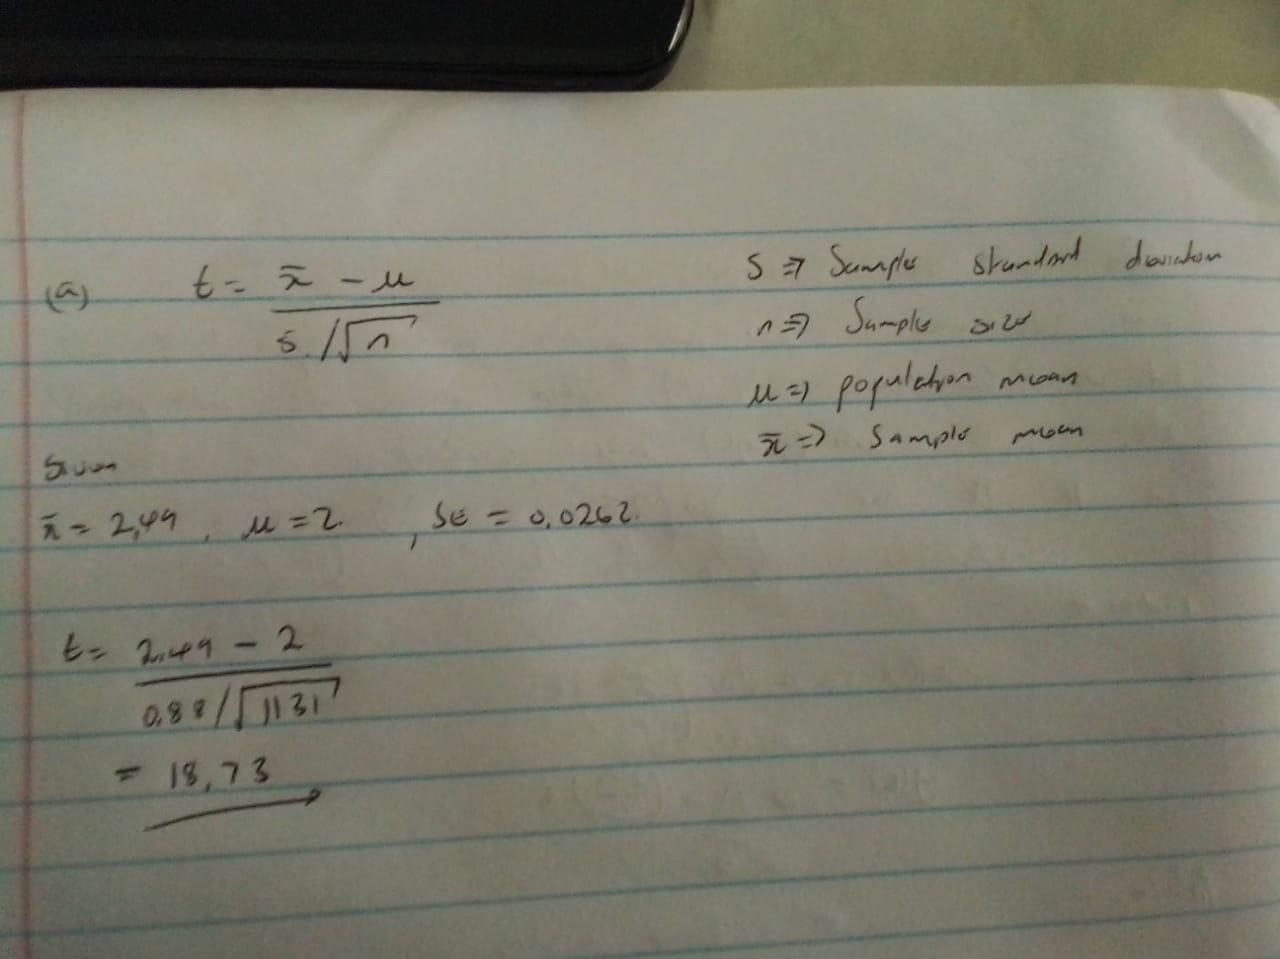 (a) t = x̄ - μ / s/√n
s => Sample standard deviation
n => Sample size
μ => population mean
x̄ => Sample mean
Given
x̄ = 2,49 , μ = 2 , SE = 0,0262
t = 2,49 - 2 / 0,88/√1131
= 18,73